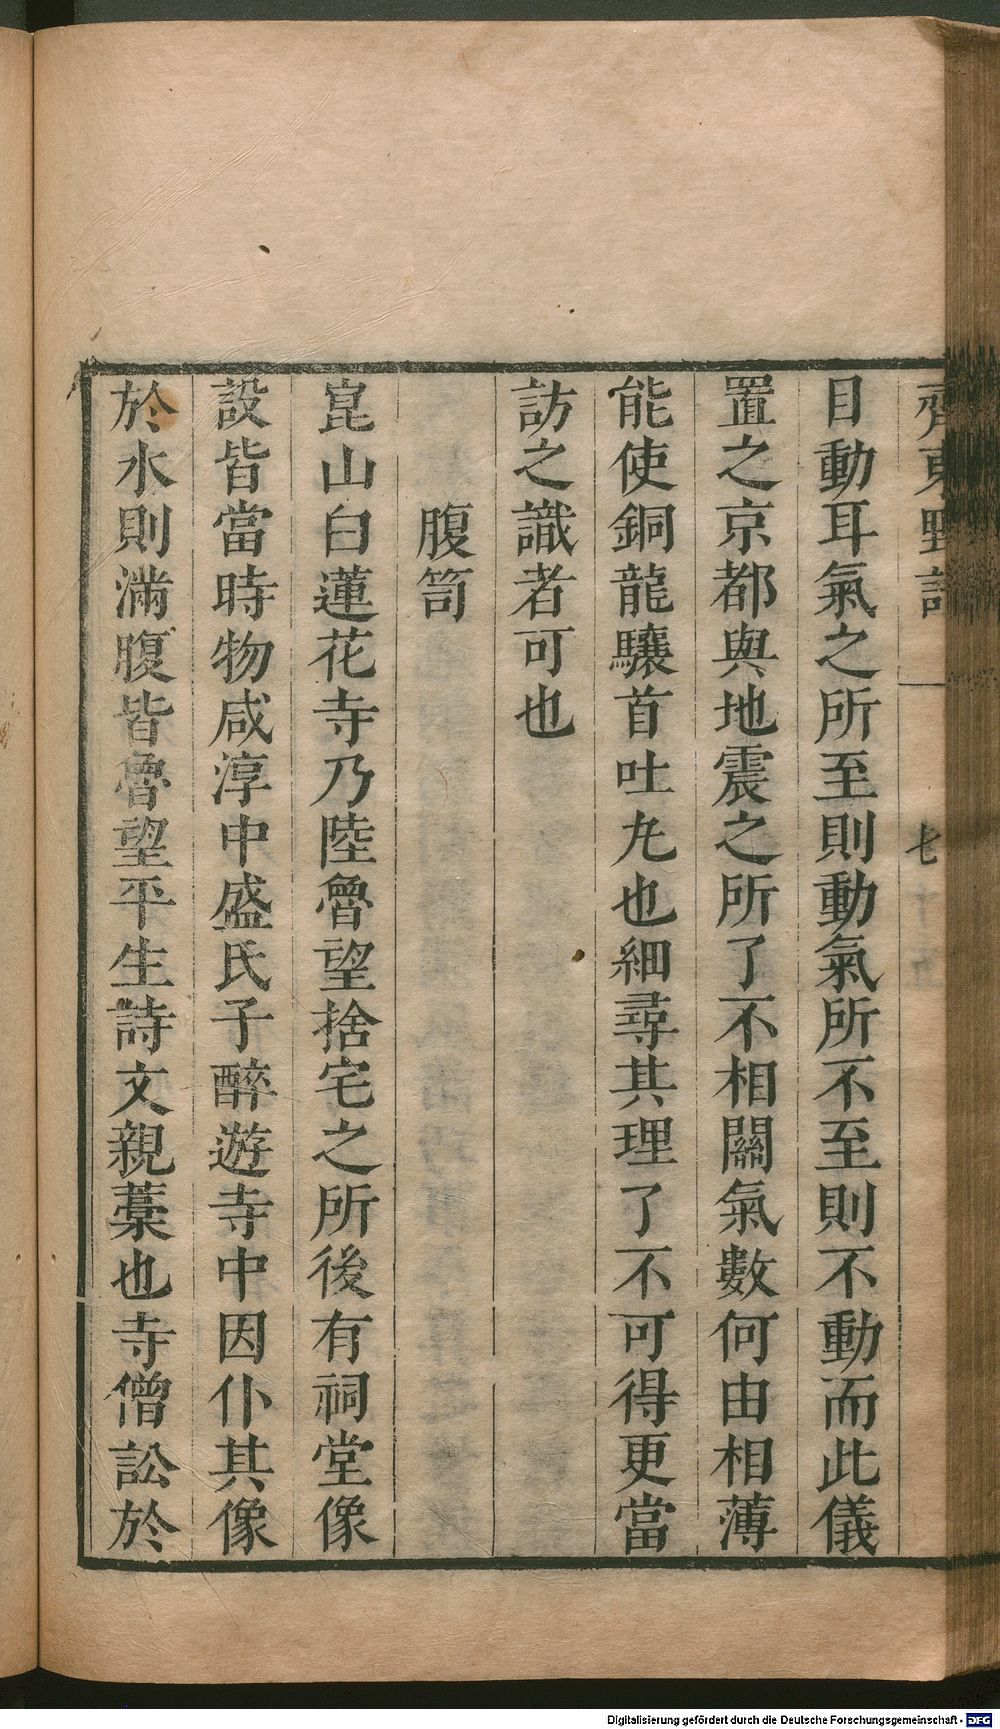 齊東野語
七
目動耳氣之所至則動氣所不至則不動而此儀
置之京都與地震之所了不相關氣數何由相薄
能使銅龍驤首吐丸也細尋其理了不可得更當
訪之識者可也
腹笥
崑山白蓮花寺乃陸魯望捨宅之所後有祠堂像
設皆當時物咸淳中盛氏子醉遊寺中因仆其像
於水則滿腹皆魯望平生詩文親藁也寺僧訟於
Digitalisierung gefördert durch die Deutsche Forschungsgemeinschaft - DFG